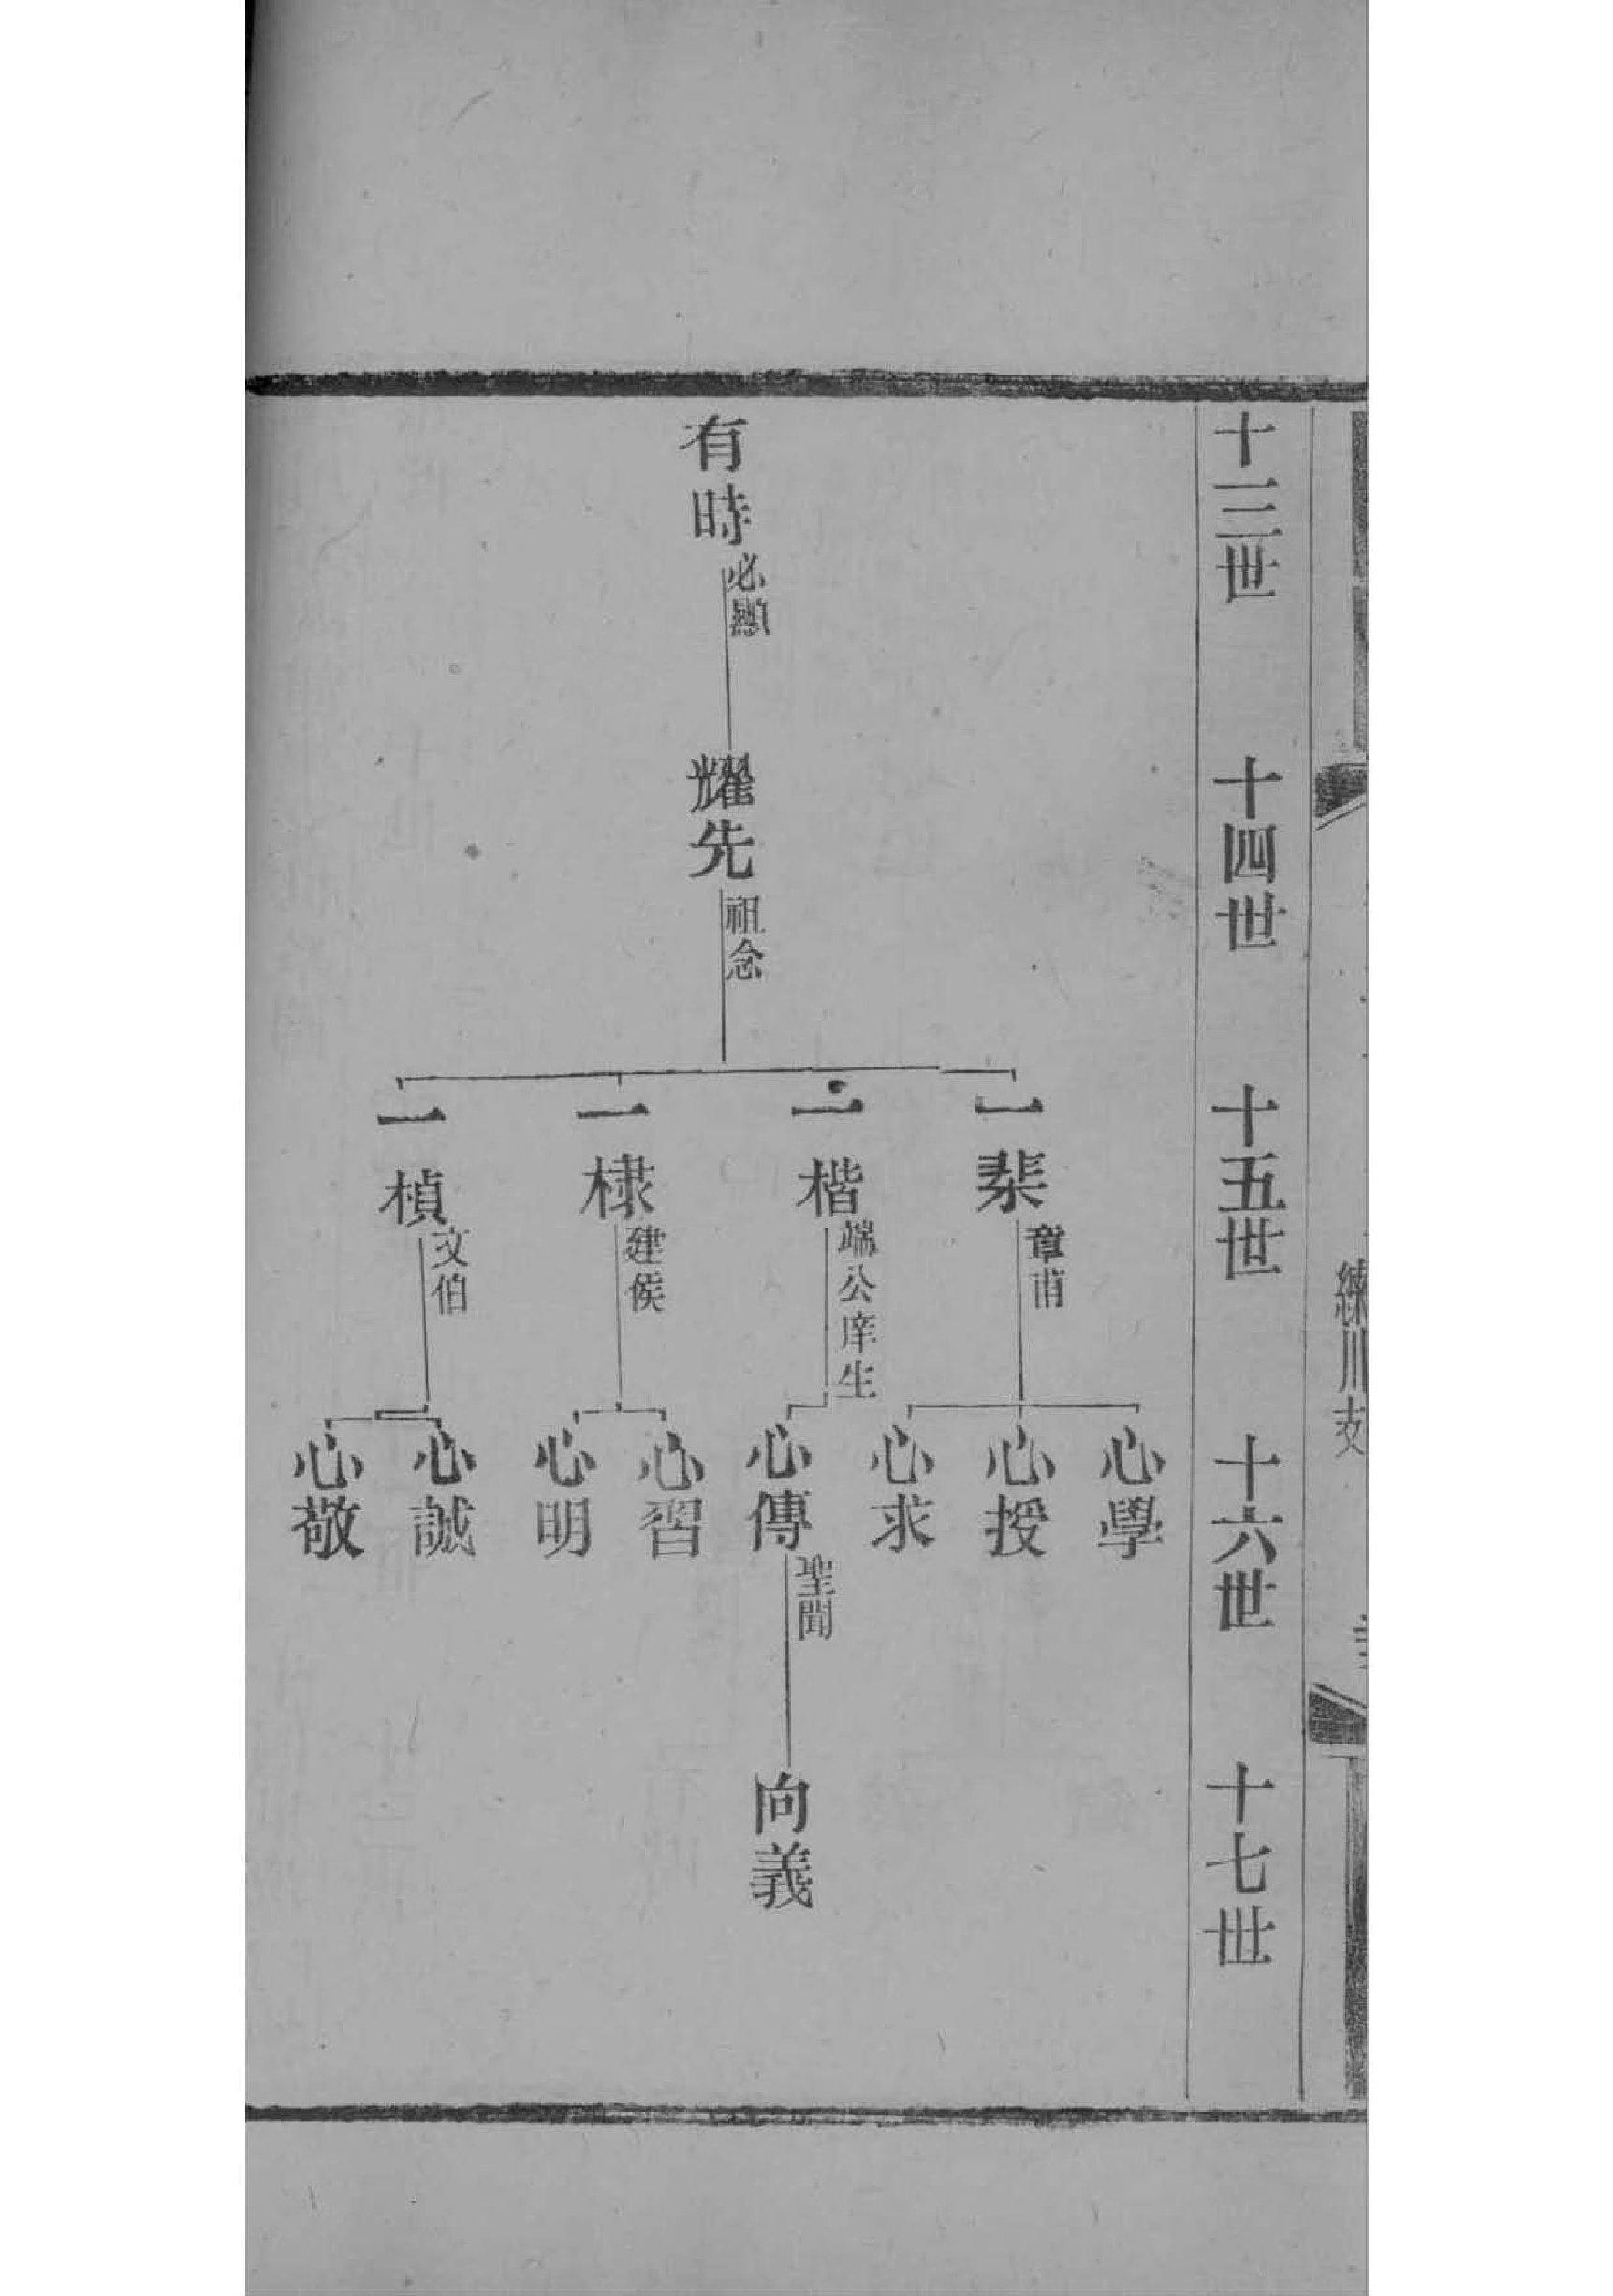 練川支
十三世
十四世
十五世
十六世
十七世
有時
必顯
耀先
祖念
一棐
章甫
一楷
端公庠生
一棣
建侯
一楨
文伯
心學
心授
心求
心傳
聖聞
心習
心明
心誠
心敬
向義